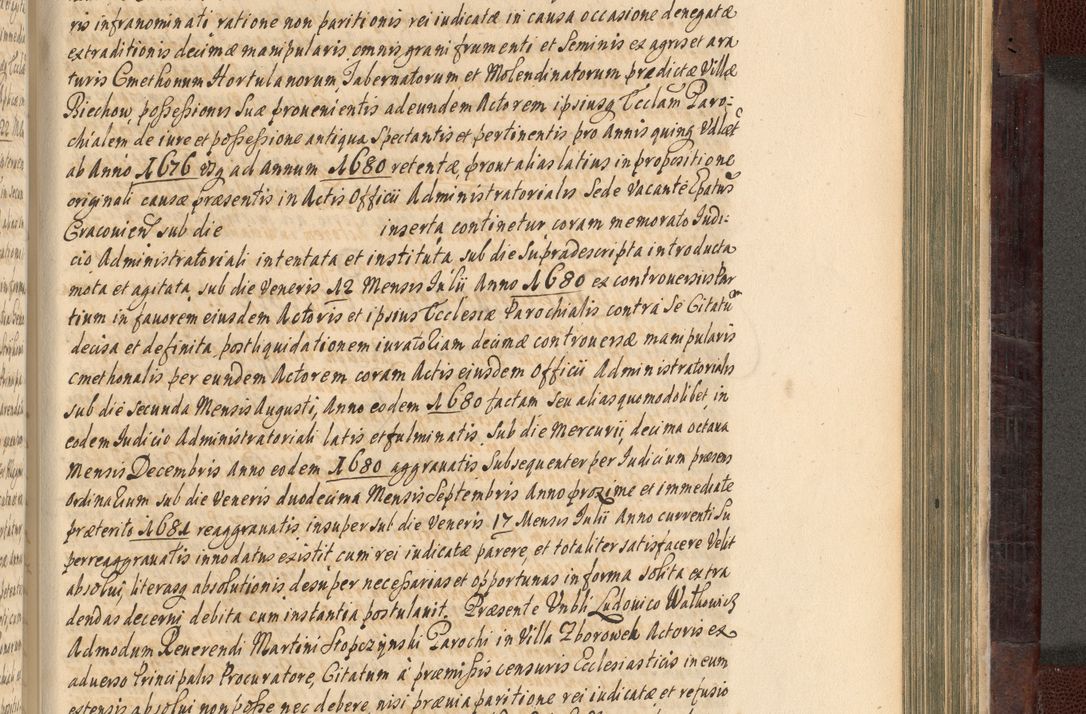 ris infranominati ratione non paritionis rei iudicatæ in causa occasione denegatæ
extraditionis decimæ manipularis, omnis grani frumenti et Seminis ex agris et ara
turis Cmethonum Hortulanorum, Tabernatorum et Molendinatorum prædictæ Villæ
Biechow, possessionis Suæ prouenientis ad eundem Actorem ipsiusq Eccłam Paro-
chialem de iure et possessione antiqua Spectantis et pertinentis pro Annis quinq
ab Anno 1676 usq ad annum 1680 retentæ, prout alias latius in propositione
originali causæ præsentis in Actis Officii Administratorialis Sede Vacante Epatus
Cracouien sub die inserta continetur coram memorato Iudi-
cio Administratoriali intentata et instituta sub die Supradescripta introducta
mota et agitata, sub die Veneris 12 Mensis Iulii Anno 1680 ex controuersiis Par
tium in fauorem eiusdem Actoris et ipsius Ecclesiæ Parochialis contra Se Citatum
decisa et definita, post liquidationem decimæ controuersæ manipularis
cmethonalis per eundem Actorem coram Actis eiusdem Officii Administratorialis
sub die secunda Mensis Augusti, Anno eodem 1680 factam seu alias quomodolibet in
eodem Iudicio Administratoriali latis et fulminatis. Sub die Mercurii, decima octaua
Mensis Decembris Anno eodem 1680 aggrauatis Subsequenter per Iudicium præsens
Ordinarium sub die Veneris duodecima Mensis Septembris Anno proxime et immediate
præterito 1681 reaggrauatis, insuper sub die Veneris 17 Mensis Iulii Anno currenti Su
perreaggrauatis innodatus existit, cum rei iudicatæ parere, et totaliter satisfacere Velit
absolui, literasq absolutionis desuper necessarias et opportunas in forma solita extra
dendas decerni debita cum instantia postulauit. Præsente Vnbli Ludouico Wałkowicz
Admodum Reuerendi Martini Stopczynski Parochi in Villa Zborowek Actoris ex
aduerso Principalis Procuratore, Citatum à præmissis censuris Ecclesiasticis in eum
extensis absolui non posse nec debere, nisi præuia paritione rei iudicatæ et refusio